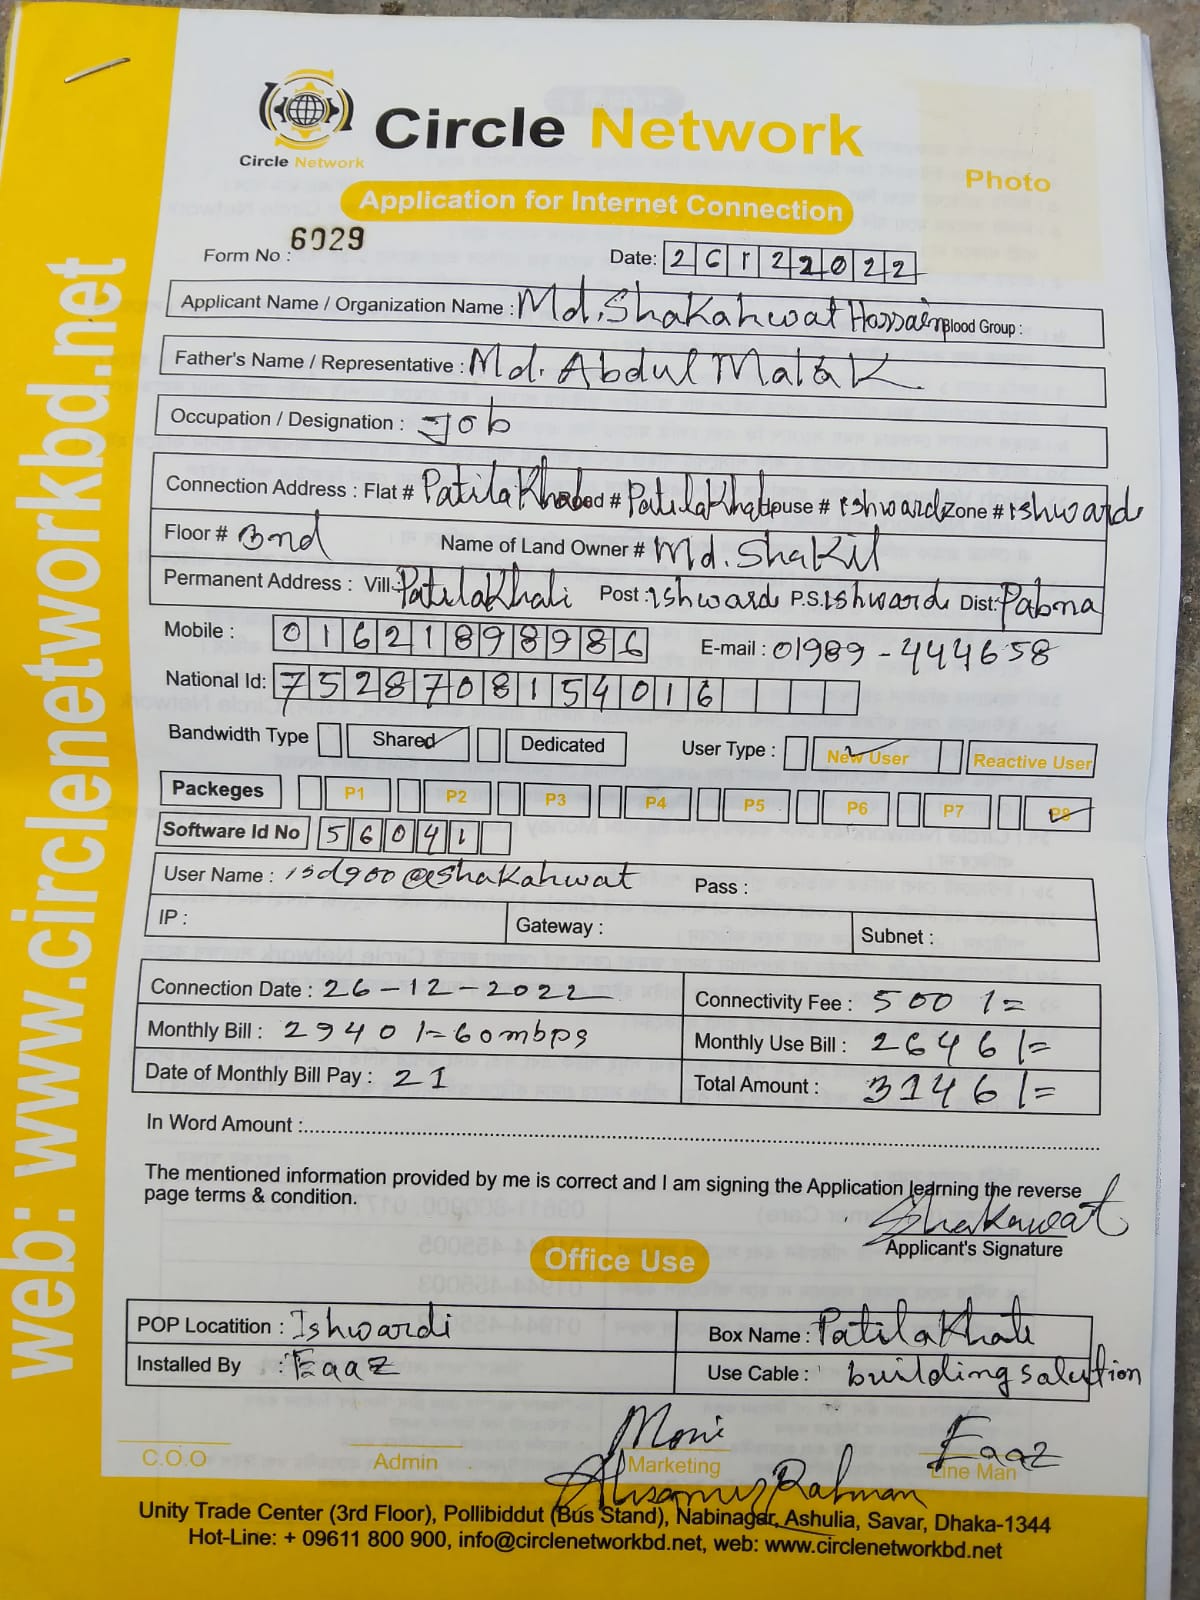 Circle Network
Circle Network
Photo
Application for Internet Connection
Form No : 6029
Date: 26122022
Applicant Name / Organization Name : Md. Shakahwat Hossain Blood Group :
Father's Name / Representative : Md. Abdul Malek
Occupation / Designation : Job
Connection Address : Flat # Patilakhali Road # Patilakhali House # ishwardi Zone # ishwardi
Floor # 3nd Name of Land Owner # Md. Shakil
Permanent Address : Vill: Patilakhali Post : ishwardi P.S. Ishwardi Dist: Pabna
Mobile : 01621898986 E-mail : 01989-444658
National Id: 7528708154016
Bandwidth Type Shared Dedicated User Type : New User Reactive User
Packeges P1 P2 P3 P4 P5 P6 P7 P8
Software Id No 56041
User Name : isd900@shakahwat Pass :
IP : Gateway : Subnet :
Connection Date : 26-12-2022 Connectivity Fee : 500 /=
Monthly Bill : 2940 /= 60mbps Monthly Use Bill : 2646 /=
Date of Monthly Bill Pay : 21 Total Amount : 3146 /=
In Word Amount :
The mentioned information provided by me is correct and I am signing the Application learning the reverse
page terms & condition.
Shakawat
Applicant's Signature
Office Use
POP Locatition : Ishwardi Box Name : Patilakhali
Installed By : Eaaz Use Cable : building salution
Moni Eaaz
C.O.O Admin Marketing Line Man
Rahman
Unity Trade Center (3rd Floor), Pollibiddut (Bus Stand), Nabinagar, Ashulia, Savar, Dhaka-1344
Hot-Line: + 09611 800 900, info@circlenetworkbd.net, web: www.circlenetworkbd.net
web: www.circlenetworkbd.net